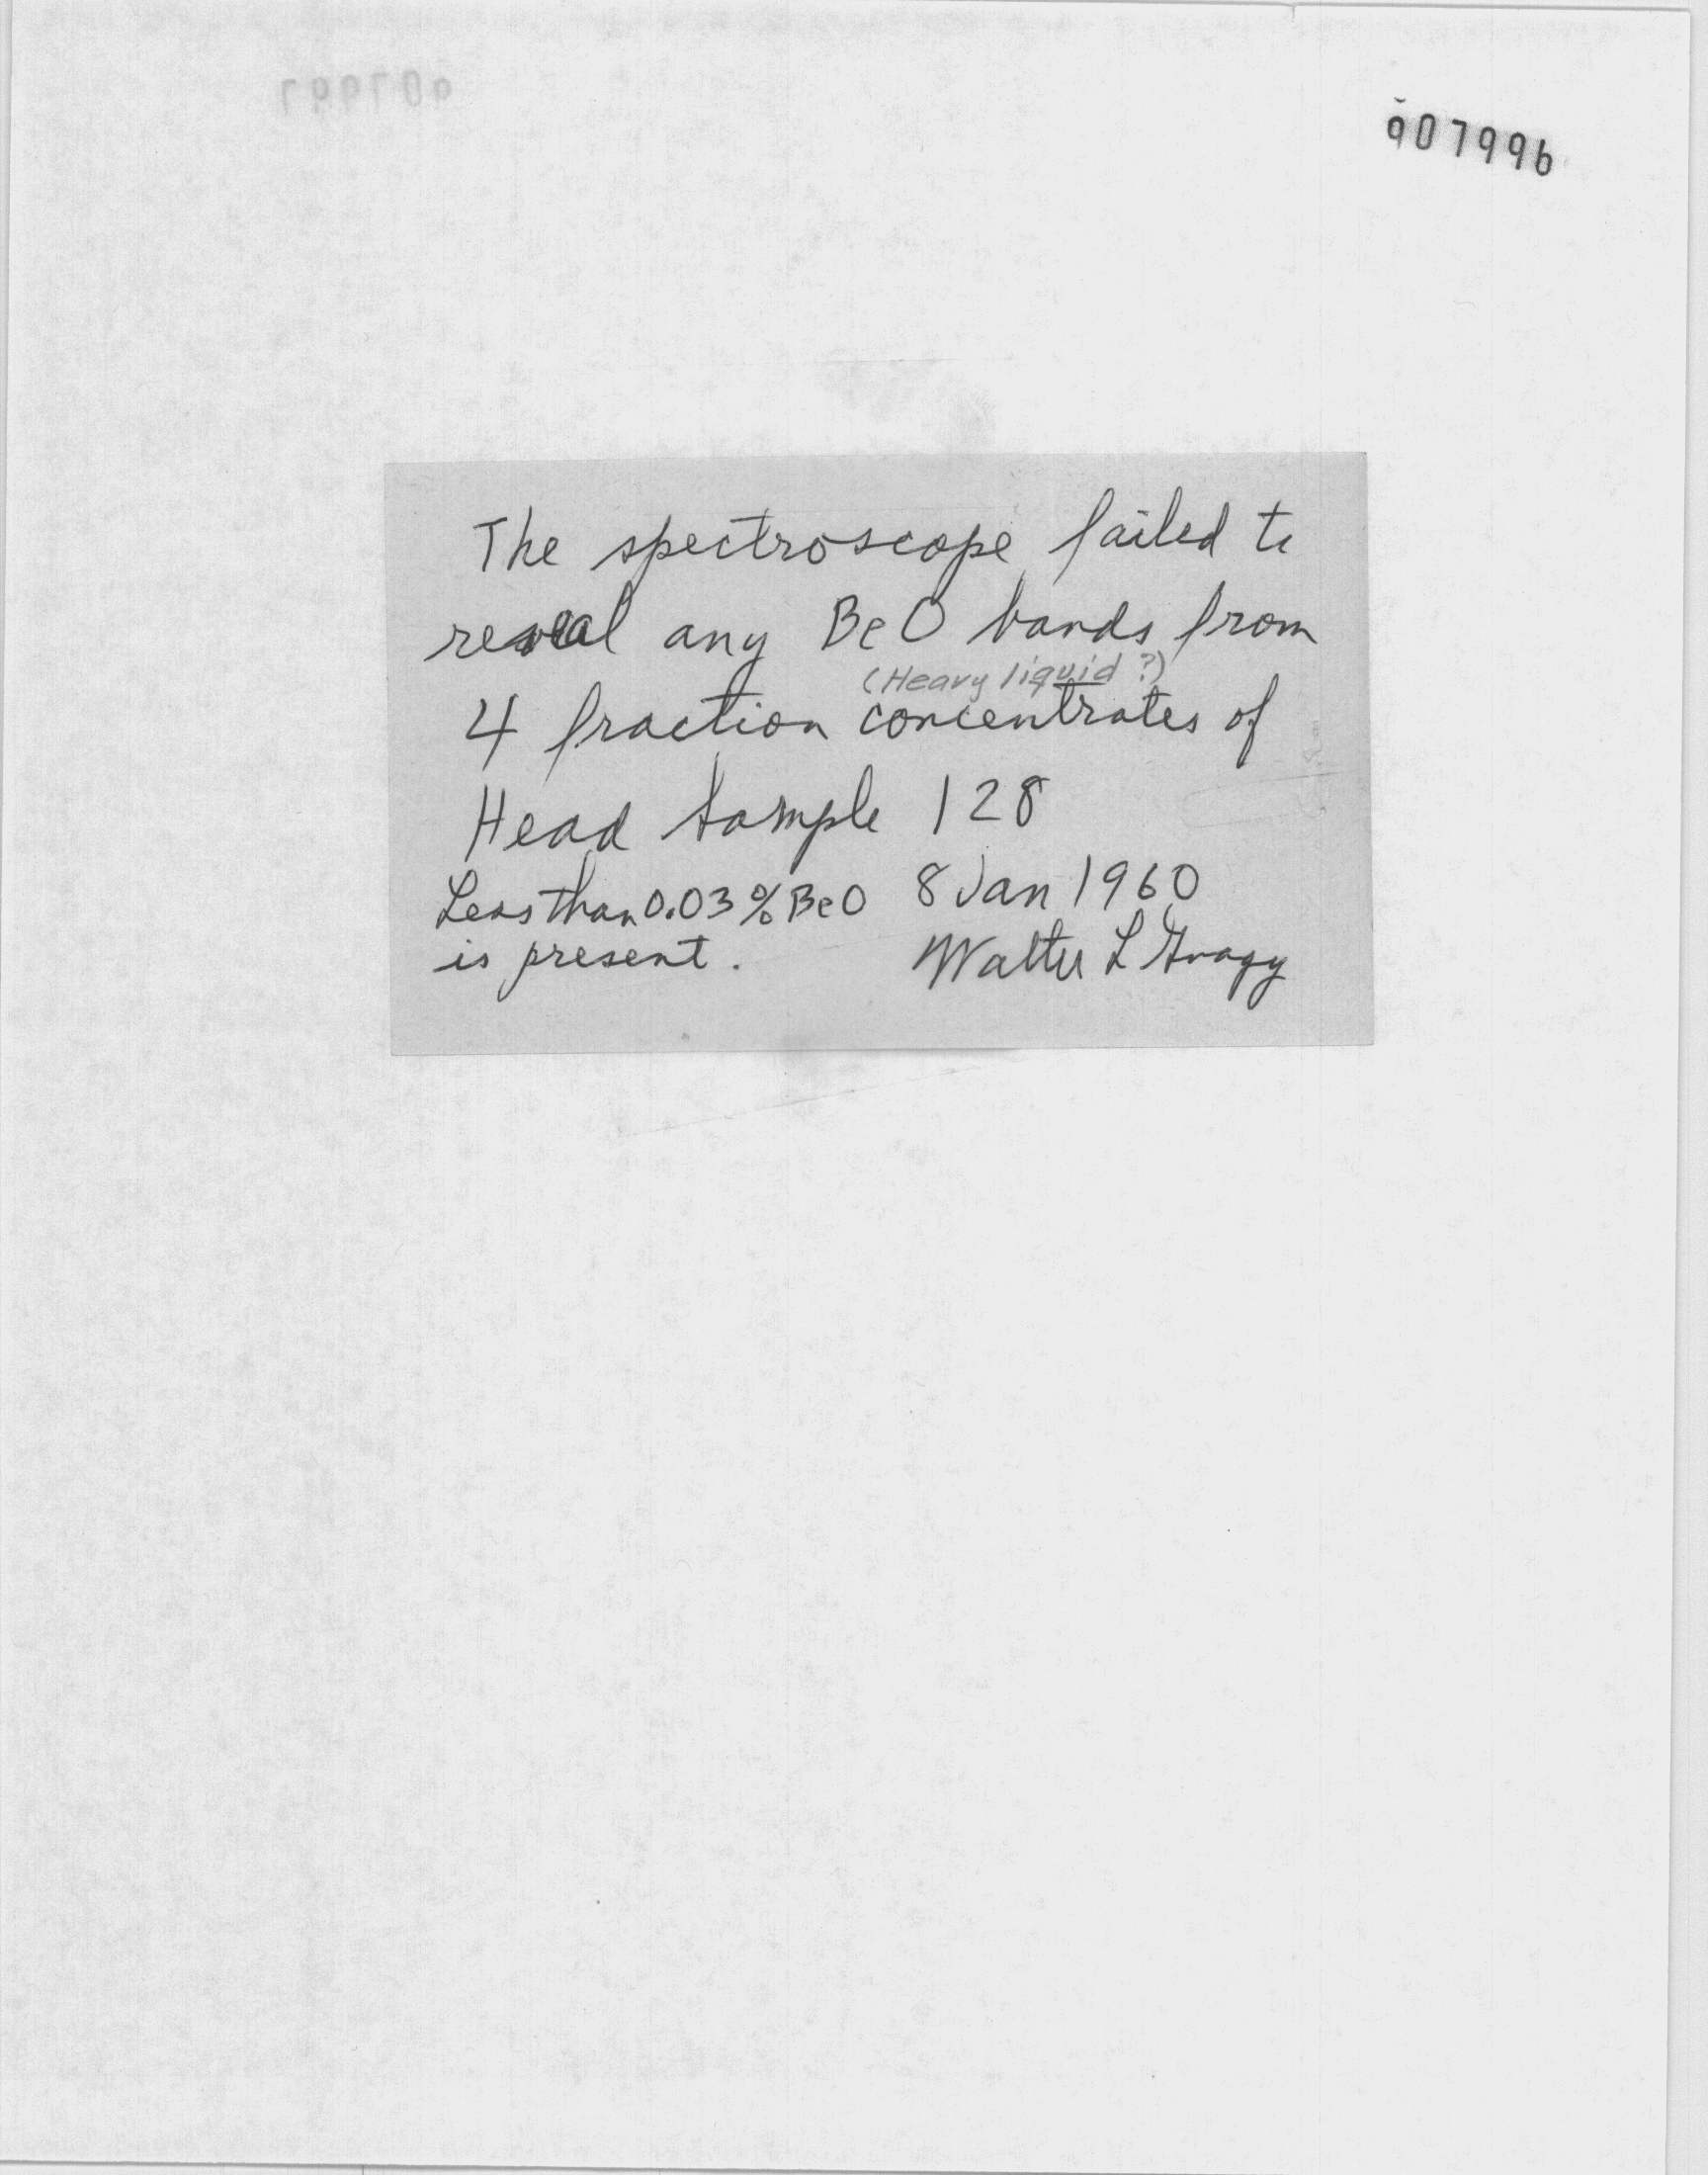 907996
The spectroscope failed to
reveal any BeO bands from
(Heavy liquid ?)
4 fraction concentrates of
Head Sample 128
Less than 0.03% BeO 8 Jan 1960
is present. Walter L